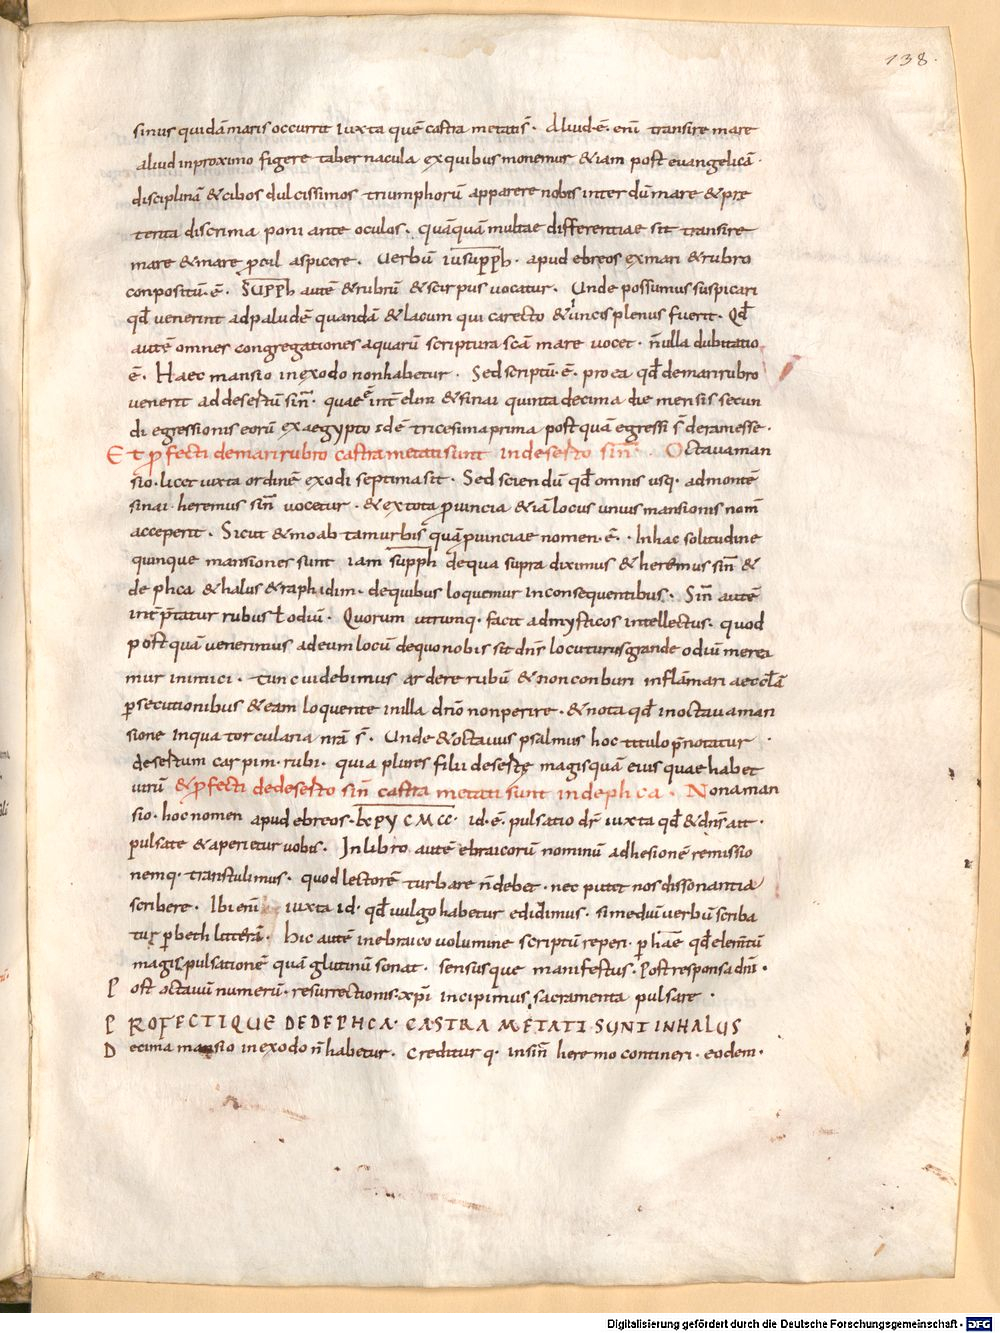 138.
sinus quidā maris occurrit iuxta quē castra metatis̄. Aliud.ē. enī transire mare
aliud inproximo figere tabernacula exquibus monemur &iam post euangelicā.
disciplinā &cibos dulcissimos triumphorū apparere nobis inter dū mare &prę
terita discrimina poni ante oculos. quāquā multae differentiae sit transire
mare &mare ꝓcul aspicere. Uerbū iusuppħ. apud ebreos exmari &rubro
conpositū.ē. Suppħ autē &rubrū &scirpus uocatur. Unde possumus suspicari
qđ venerint adpaludē quandā &lacum qui carecto &iuncis plenus fuerit. Qđ
autē omnes congregationes aquarū scriptura scā mare uocet. ñulla dubitatio
ē. Haec mansio inexodo nonhabetur. Sed scriptū.ē. pro ea qđ demarirubro
venerit addesertū sin̄. quae ē int̄ elim &sinai quinta decima die mensis secun
di egressionis eorū exaegypto idē tricesimaprima post quā egressi s̄ deramesse.
Et ꝓfecti demarirubro castrametati sunt indeserto sin̄. Octauaman
sio. licet iuxta ordinē exodi septima sit. Sed sciendū qđ omnis usq. admontē
sinai. heremus sin̄ uocetur. &extota ꝓuincia &iā locus unius mansionis nom̄
acceperit. Sicut &moab tamurbis quāꝓuinciae nomen.ē. Inhac solitudine
quinque mansiones sunt iam suppħ dequa supra diximus &heremus sin̄ &
dephca &halus &raphidim. dequibus loquemur inconsequentibus. Sin̄ autē
int̄p̄tatur rubus ł odiū. Quorum utrunq. facit admysticos intellectus. quod
postquā venerimus adeum locū dequo nobis sit dn̄s locuturus grande odiū merei
mur inimici. tunc uidebimus ardere rubū &nonconburi inflāmari aeccłā
ꝑsecutionibus &eam loquente inilla dn̄o nonperire. &nota qđ inoctaua man
sione inqua torcularia nr̄a s̄. Unde &octauus psalmus hoc titulo p̄notatur.
desertum carpim. rubi. quia plures filii desertę magis quā eius quae habet
uirū &ꝓfecti dedeserto sin̄ castra metati sunt indephca. Nonaman
sio. hoc nomen apud ebreos. id.ē. pulsatio dr̄ iuxta qđ &dn̄s ait.
pulsate &aperietur uobis. Inlibro autē ebraicorū nominū adhesionē remissio
nemq. transtulimus. quod lectorē turbare n̄ debet. nec putet nos dissonantia
scribere. Ibi enī iuxta id. qđ uulgo habetur edidimus. simediū uerbū scriba
tur ꝑ beth litterā. hic autē inebraico uolumine scriptū reperi. ꝑ hāe qđ elem̄tū
magis pulsationē quā glutinū sonat. sensusque manifestus. Post responsa dn̄i.
Post octauū numerū. resurrectionis xp̄i incipimus sacramenta pulsare.
PROFECTIQUE DEDEPHCA. CASTRA METATI SUNT INHALUS
Decima mansio inexodo n̄ habetur. creditur q. insin̄ heremo contineri. eodem.
Digitalisierung gefördert durch die Deutsche Forschungsgemeinschaft - DFG